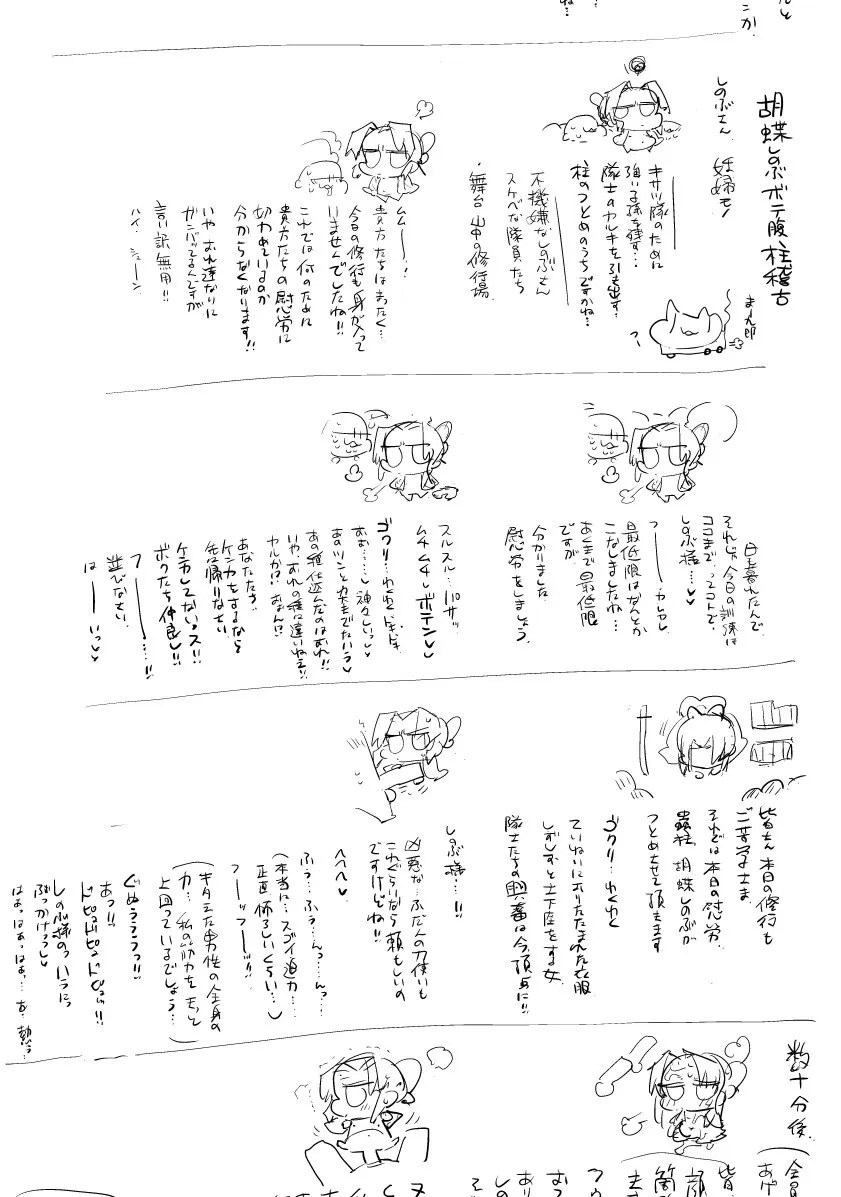 胡蝶しのぶボテ腹柱稽古
しのぶさん 妊婦モノ
キサツ隊のために
強い子孫を残す…
隊士のヤルキを引き出す…
柱のつとめのうちですかね…
不機嫌なしのぶさん
スケベな隊員たち
・舞台 山中の修行場
ムムーー!
貴方たちはまったく…
今日の修行も身が入って
いませんでしたね!!
これでは何のために
貴方たちの慰労に
切りわけているのか
分からなくなります!!
いや おれ達なりに
ガンバってるんですが
言い訳無用!!
ハイ シューン
日も暮れたんで
それじゃ今日の訓練は
ココまで…ってコトで…
しのぶ様…♥♥
最低限はなんとか
こなしましたね…
あくまで最低限
ですが
分かりました
慰労をしましょう
スルスル…パサッ
ムチムチ ボテン♥♥
ゴクリ…わくわく ドキドキ
おお……神々しいっ♥
あのツンと大きなでたハラ♥
あの種仕込んだのはおれ!!
いや、おれの種に違いねえ!!
ヤルか!? あぁん!?
あなたたち…
ケンカをするなら
先帰りなさい
ケンカしてないっス!!
ボクたち仲良し!!
フーーー…!!
並びなさい
はーーいっ♥♥
皆さん 本日の修行も
ご苦労さま
それでは本日の慰労
蟲柱 胡蝶しのぶが
つとめさせて頂きます
ゴクリ…わくわく
ていねいにおりたたまれた衣服
しずしずと土下座をする女
隊士たちの興奮は今、頂点に!!
しのぶ様…!!
凶悪な…ふだんの刀使いも
これぐらいなら頼もしいの
ですけどね!!
へへへ♥
ふぅ…ふぅ…んっ…んっ…
(本当に…スゴイ迫力…
正直怖ろしいくらい…)
フーーッフーーッ!!
(キタエた男性の全身の
力… 私の筋力をもって
上回っているでしょう…)
ぐぬうううっ!!
あっ!!
ドピュドピュドピュッ!!
しのぶ様のハラにっ
ぶっかけっ♥
はぁっはぁっはぁっ… あ、熱ぅ…
数十分後